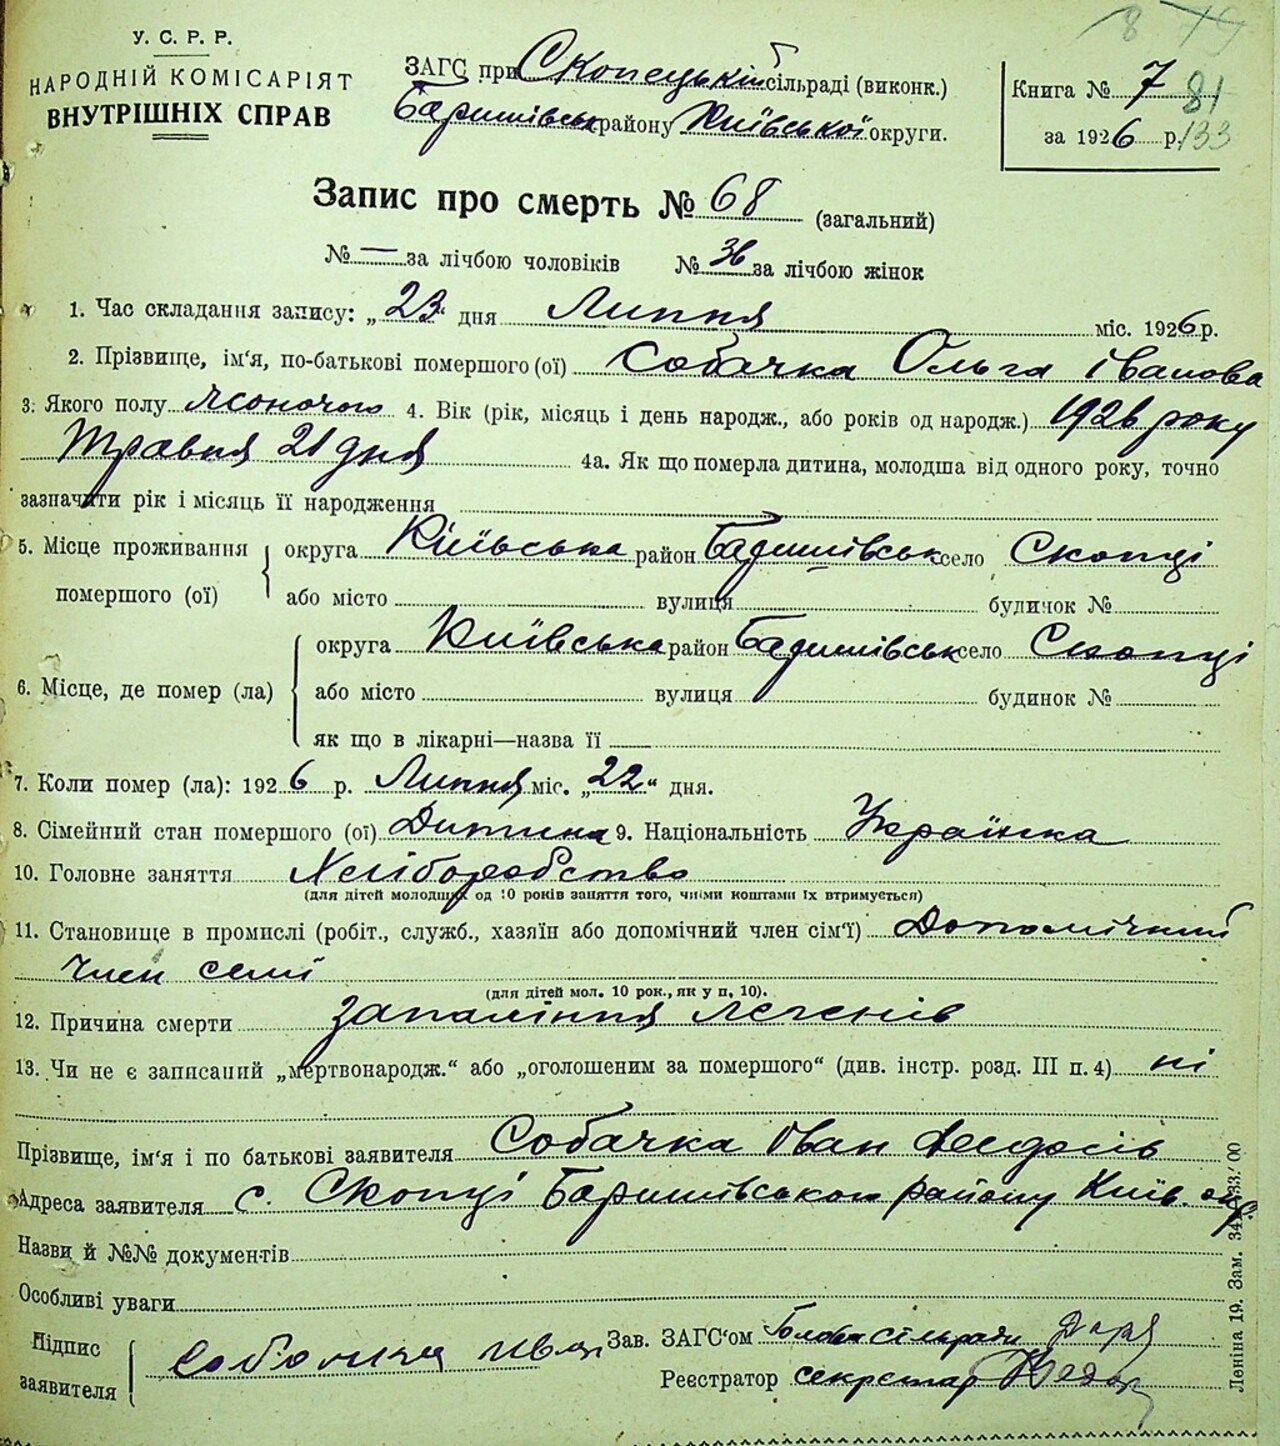 У. С. Р. Р.
НАРОДНІЙ КОМІСАРІЯТ
ВНУТРІШНІХ СПРАВ
ЗАГС при Скопецькій сільраді (виконк.)
Баришівськ району Київської округи.
Книга № 7 81
за 1926 р. 133
8 79
Запис про смерть № 68 (загальний)
№ — за лічбою чоловіків № 36 за лічбою жінок
1. Час складання запису: „23“ дня Липня міс. 1926 р.
2. Прізвище, ім'я, по-батькові помершого (ої) Собачка Ольга Іванова
3. Якого полу жоночого 4. Вік (рік, місяць і день народж., або років од народж.) 1926 року
Травня 21 дня 4а. Як що померла дитина, молодша від одного року, точно
зазначити рік і місяць її народження
5. Місце проживання помершого (ої) округа Київська район Баришівськ село Скопці
або місто вулиця будинок №
6. Місце, де помер (ла) округа Київська район Баришівськ село Скопці
або місто вулиця будинок №
як що в лікарні—назва її
7. Коли помер (ла): 1926 р. Липня міс. „22“ дня.
8. Сімейний стан помершого (ої) Дитина 9. Національність Українка
10. Головне заняття Хліборобство
(для дітей молодших од 10 років заняття того, чиїми коштами їх втримується)
11. Становище в промислі (робіт., служб., хазяїн або допомічний член сім'ї) Допомічний
член семї
(для дітей мол. 10 рок., як у п. 10).
12. Причина смерти Запаління легенів
13. Чи не є записаний „мертвонародж.“ або „оголошеним за помершого“ (див. інстр. розд. III п. 4) ні
Прізвище, ім'я і по батькові заявителя Собачка Іван Федосів
Адреса заявителя с. Скопці Баришівського району Київ. окр.
Назви й №№ документів
Особливі уваги
Підпис заявителя Собачка Иван
Зав. ЗАГС'ом Голова сільради
Реєстратор секретар
Леніна 19. Зам.